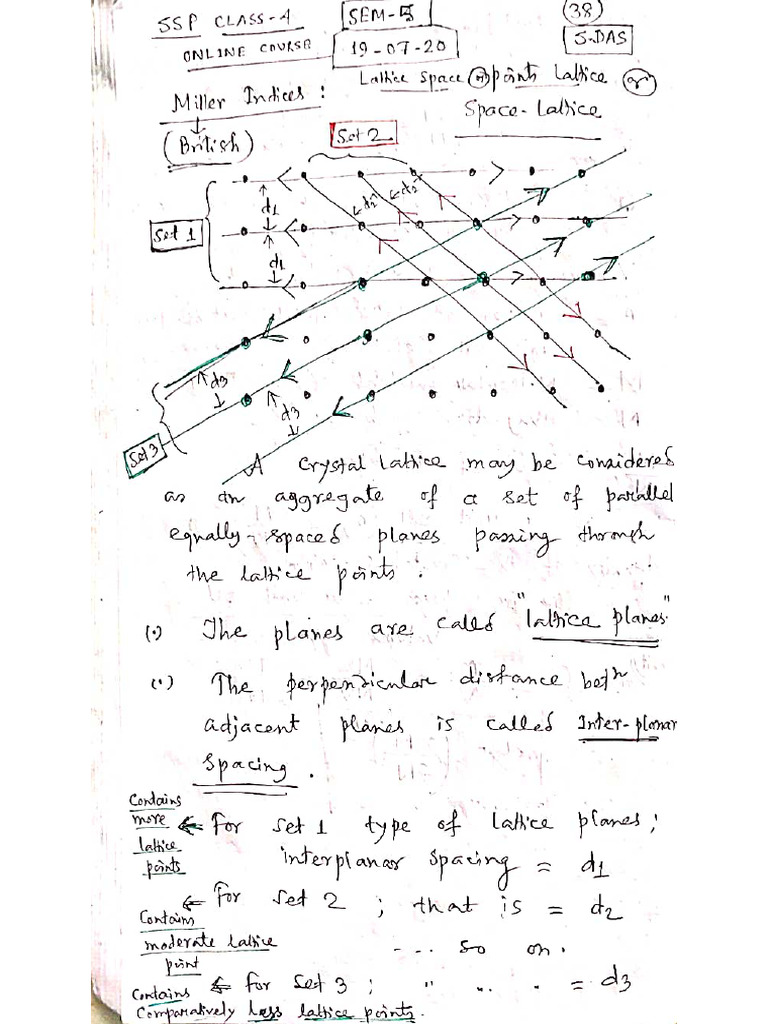 SSP CLASS-4
SEM-5
38
ONLINE COURSE
19-07-20
S.DAS
Lattice Space or points Lattice or
Miller Indices:
Space-Lattice
(British)
Set 2
d1
d2
d2
Set 1
d1
d3
d3
Set 3
A crystal lattice may be considered
as an aggregate of a set of parallel
equally-spaced planes passing through
the lattice points.
(•) The planes are called "lattice planes"
(•) The perpendicular distance betn
adjacent planes is called Inter-planar
Spacing.
Contains
more
lattice
points
← For set 1 type of lattice planes;
interplanar spacing = d1
← For set 2 ; that is = d2
Contains
moderate lattice
point
---- so on.
← for set 3 ; " " " = d3
Contains
Comparatively less lattice points.